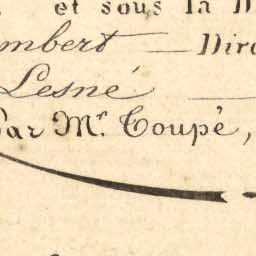 et sous la D
mbert — Dire
Lesné —
Par Mr. Coupé,